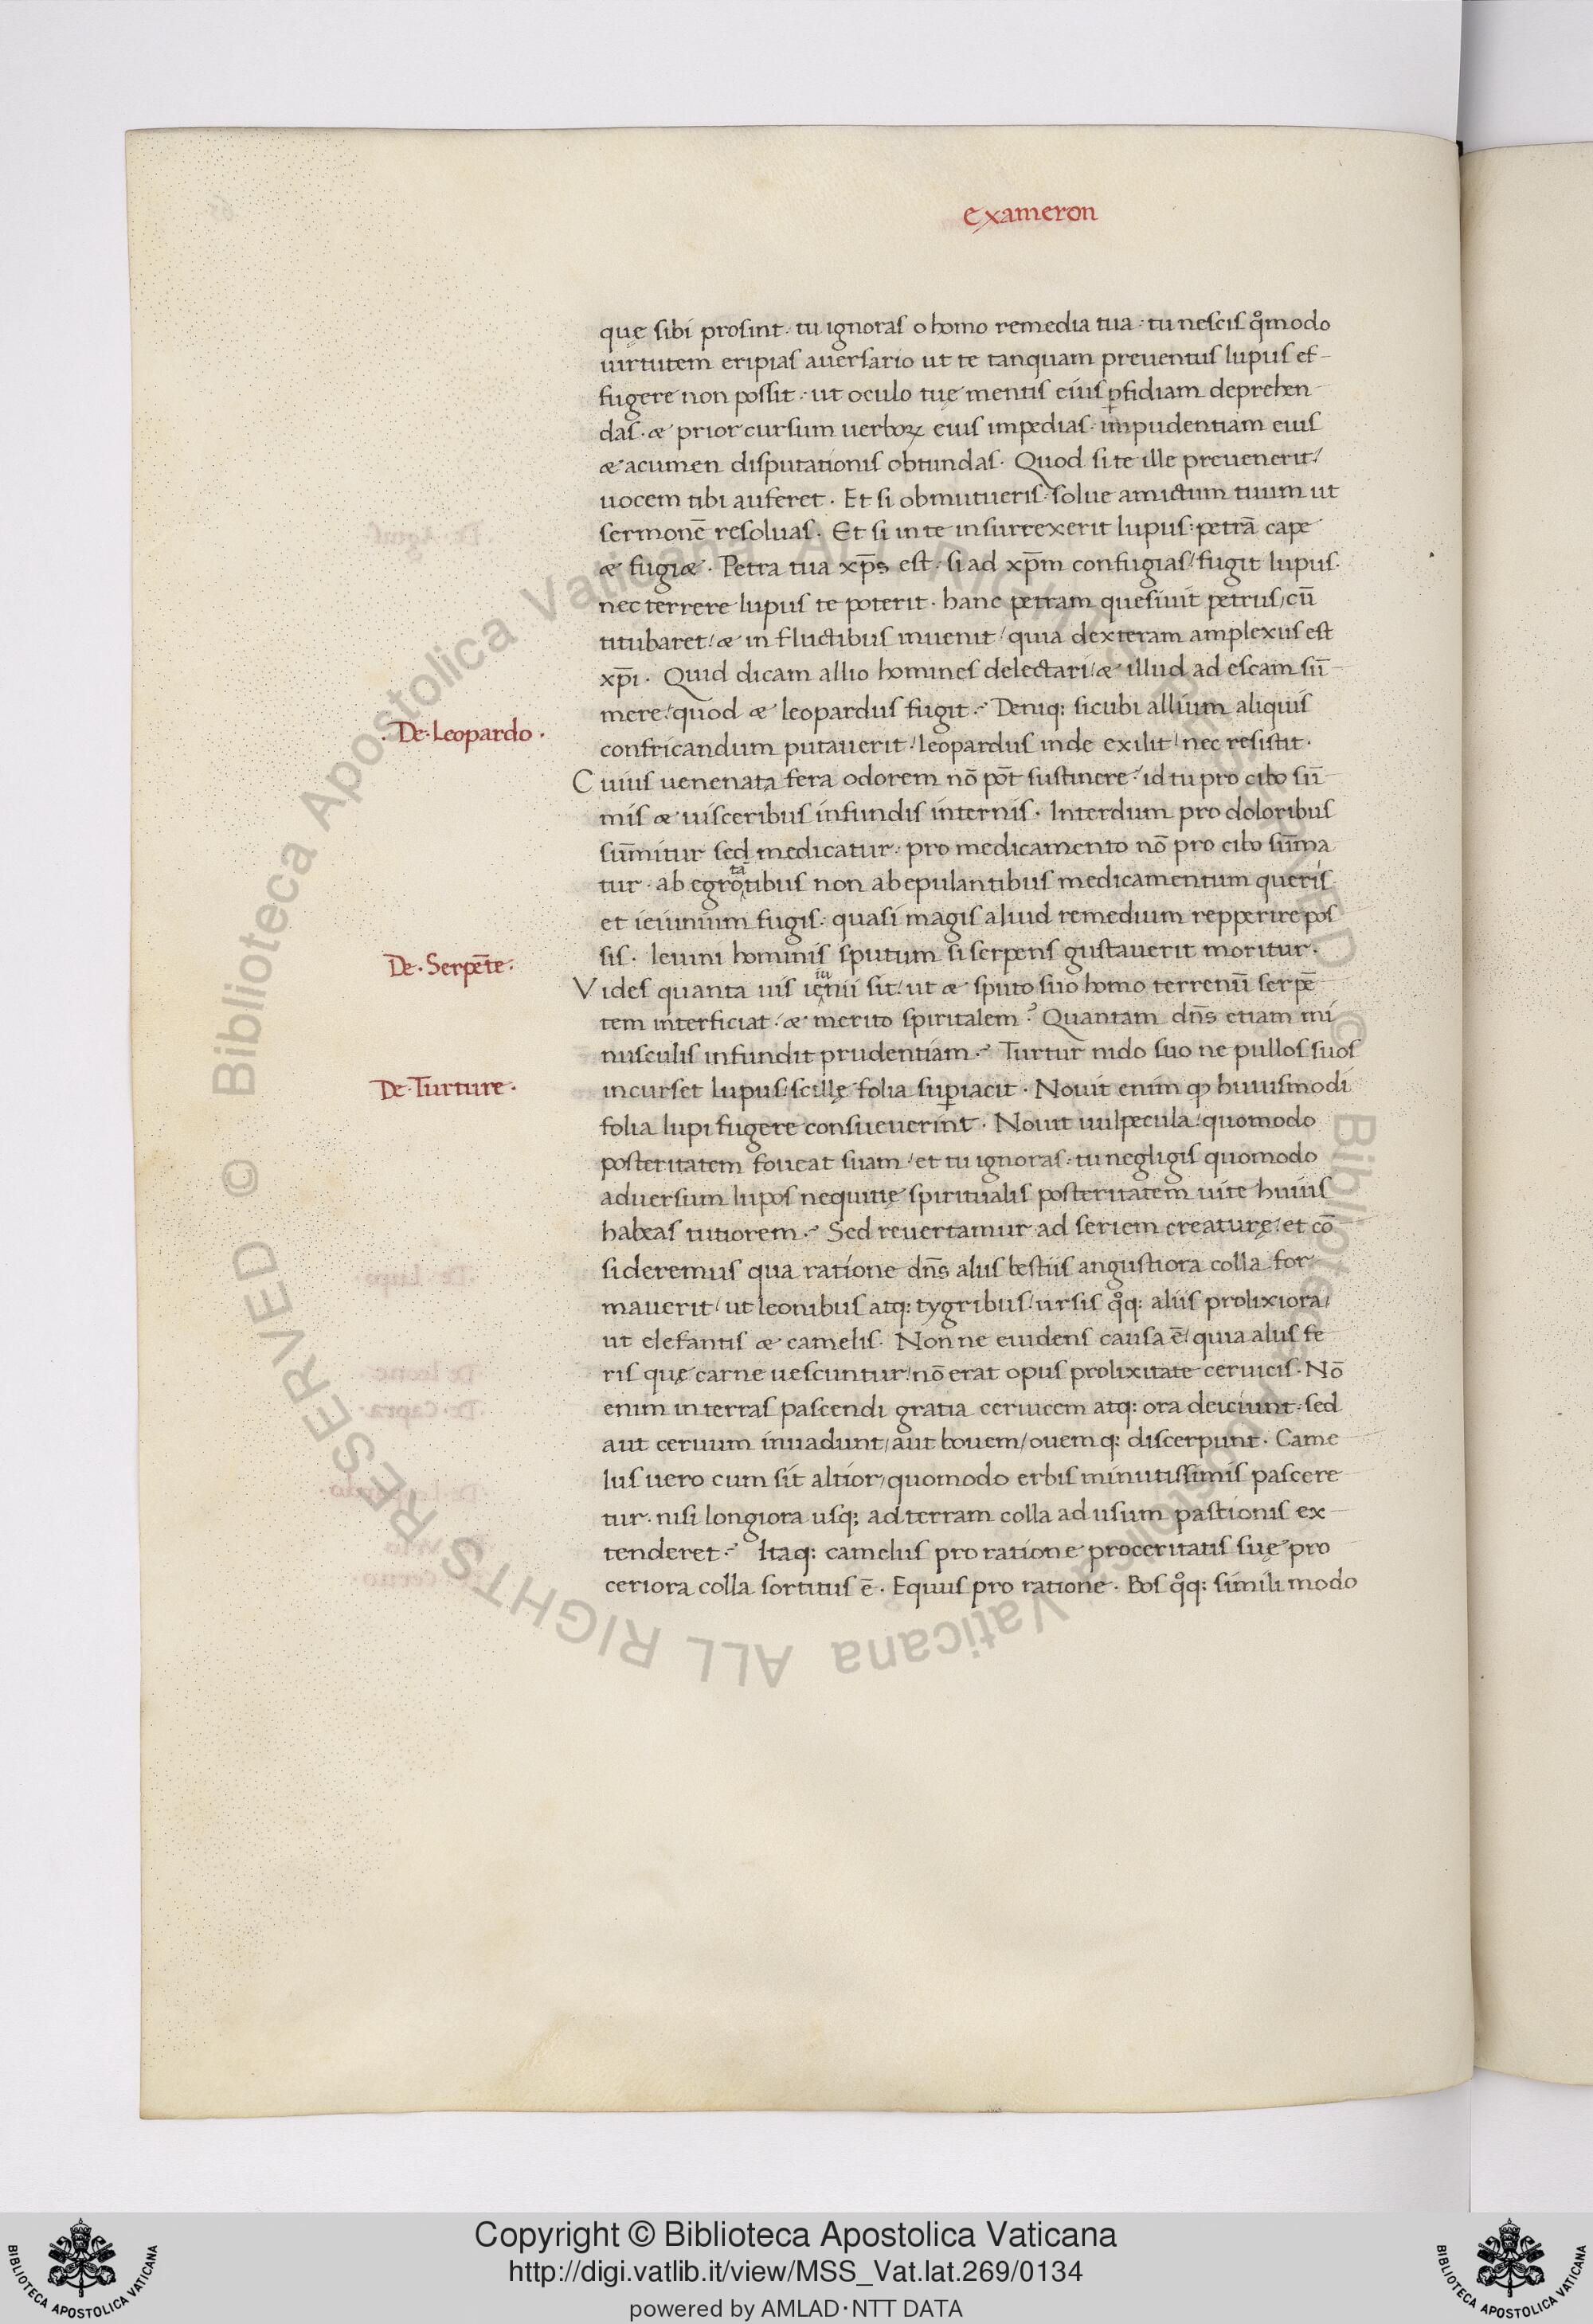 exameron
quę sibi prosint · tu ignoras o homo remedia tua · tu nescis qͦmodo
uirtutem eripias auersario ut te tanquam preuentus lupus ef
fugere non possit · ut oculo tuę mentis eius ꝑfidiam deprehen
das · & prior cursum uerboꝝ eius impedias · impudentiam eius
& acumen disputationis obtundas · Quod si te ille preuenerit /
uocem tibi auferet · Et si obmutueris · solue amictum tuum ut
sermonē resoluas · Et si in te insurrexerit lupus : petrā cape
& fugi& · Petra tua xp̄s est · si ad xp̄m confugias / fugit lupus ·
nec terrere lupus te poterit · hanc petram quesiuit petrus / cū
titubaret / & in fluctibus inuenit / quia dexteram amplexus est
xp̄i · Quid dicam allio homines delectari / & illud ad escam sū
mere / quod & leopardus fugit · Deniq: sicubi allium aliquis
· De · Leopardo ·
confricandum putauerit / leopardus inde exilit / nec resistit ·
Cuius uenenata fera odorem nō pōt sustinere / id tu pro cibo sū
mis & uisceribus infundis internis · Interdum pro doloribus
sūmitur sed medicatur · pro medicamento nō pro cibo sūma
tur · ab egrotātibus non ab epulantibus medicamentum queris
et ieiunium fugis · quasi magis aliud remedium repperire pos
sis · Ieiuni hominis sputum si serpens gustauerit moritur ·
De · Serpēte ·
Vides quanta uis ieiunii sit / ut & sputo suo homo terrenū serpē
tem interficiat · & merito spiritalem ? Quantam dn̄s etiam mi
nusculis infundit prudentiam · Turtur nido suo ne pullos suos
De · Turture ·
incurset lupus / scillę folia suꝑiacit · Nouit enim ꝙ huiusmodi
folia lupi fugere consueuerint · Nouit uulpecula / quomodo
posteritatem foueat suam / et tu ignoras · tu negligis quomodo
aduersum lupos nequitię spiritualis posteritatem uite huius
habeas tutiorem · Sed reuertamur ad seriem creaturę / et cō
sideremus qua ratione dn̄s aliis bestiis angustiora colla for
mauerit / ut leonibus atq: tygribus / ursis qͦq: aliis prolixiora /
ut elefantis & camelis · Nonne euidens causa ē / quia aliis fe
ris quę carne uescuntur / nō erat opus prolixitate ceruicis · Nō
enim in terras pascendi gratia ceruicem atq: ora deiciunt · sed
aut ceruum inuadunt / aut bouem / ouemq: discerpunt · Came
lus uero cum sit altior / quomodo erbis minutissimis pascere
tur · nisi longiora usq; ad terram colla ad usum pastionis ex
tenderet · Itaq: camelus pro ratione proceritatis suę pro
ceriora colla sortitus ē · Equus pro ratione · Bos qͦq: simili modo
© Biblioteca Apostolica Vaticana ALL RIGHTS RESERVED © Biblioteca Apostolica Vaticana ALL RIGHTS RESERVED
Copyright © Biblioteca Apostolica Vaticana
http://digi.vatlib.it/view/MSS_Vat.lat.269/0134
powered by AMLAD·NTT DATA
BIBLIOTECA APOSTOLICA VATICANA
BIBLIOTECA APOSTOLICA VATICANA